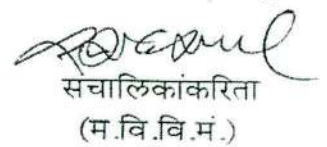 सचालिकांकरिता
(म.वि.वि.मं.)